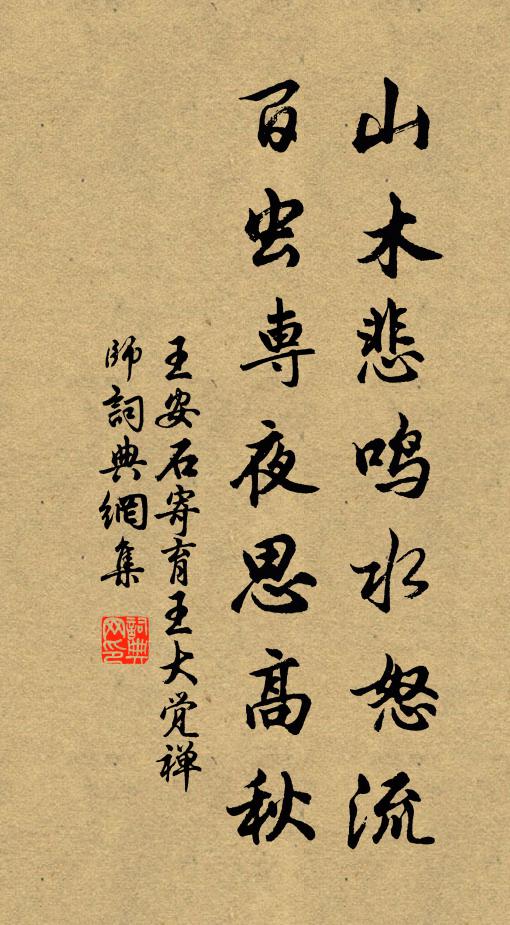 山木悲鸣水怒流
百虫専夜思高秋
王安石寄育王大觉禅
师詞典網集
詞典网印